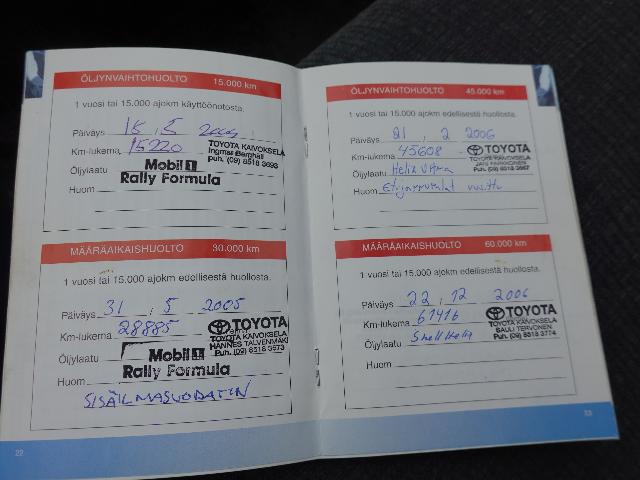 ÖLJYNVAIHTOHUOLTO 15.000 km
1 vuosi tai 15.000 ajokm käyttöönotosta.
Päiväys 15 . 5 2004
Km-lukema 15220
TOYOTA KAIVOKSELA
Ingmar Berghäll
puh. (09) 8518 3693
Öljylaatu Mobil 1
Rally Formula
Huom
MÄÄRÄAIKAISHUOLTO 30.000 km
1 vuosi tai 15.000 ajokm edellisestä huollosta.
Päiväys 31 . 5 2005
Km-lukema 28885
TOYOTA
TOYOTA KAIVOKSELA
HANNES TALVENMÄKI
Puh. (09) 8518 5673
Öljylaatu Mobil 1
Rally Formula
Huom
SISÄILMASUODATIN
22
ÖLJYNVAIHTOHUOLTO 45.000 km
1 vuosi tai 15.000 ajokm edellisestä huollosta.
Päiväys 21 . 2 2006
Km-lukema 45608
TOYOTA
TOYOTA KAIVOKSELA
Puh. (09) 8518 3667
Öljylaatu Helix Ultra
Huom Etujarrupalat vaihto
MÄÄRÄAIKAISHUOLTO 60.000 km
1 vuosi tai 15.000 ajokm edellisestä huollosta.
Päiväys 22 . 12 2006
Km-lukema 61416
TOYOTA
TOYOTA KAIVOKSELA
SAULI TERVONEN
Puh. (09) 8518 3774
Öljylaatu Shell Helix
Huom
23